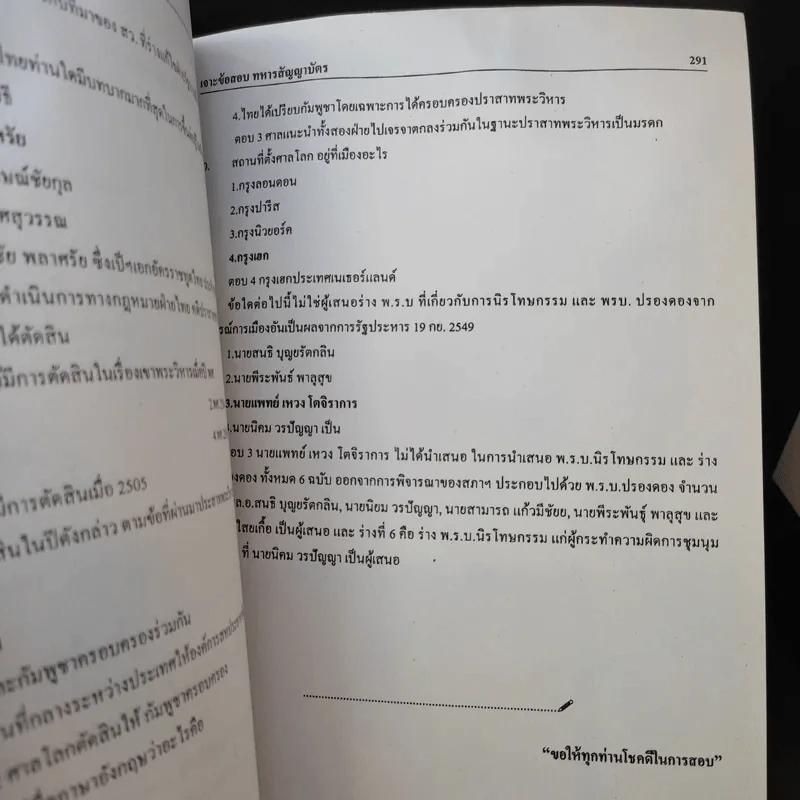 กับที่มาของ สว. ที่ร่างแก้ไข
ไทยท่านใดมีบทบาทมากที่สุดในการ
ธี
ศรัย
มณ์ชัยกุล
ศสุวรรณ
ชัย พลาศรัย ซึ่งเป็นเอกอัครราชทูตไทย
ดำเนินการทางกฎหมายฝ่ายไทย
ได้ตัดสิน
มีการตัดสินในเรื่องเขาพระวิหาร
มีการตัดสินเมื่อ 2505
สินในปีดังกล่าว ตามข้อที่ผ่านมาประสาท
ละกัมพูชาครอบครองร่วมกัน
นที่กลางระหว่างประเทศให้องค์การสหประชา
ศาลโลกตัดสินให้ กัมพูชาครอบครอง
ภาษาอังกฤษว่าอะไรคือ
เจาะข้อสอบ ทหารสัญญาบัตร 291
4.ไทยได้เปรียบกัมพูชาโดยเฉพาะการได้ครอบครองปราสาทพระวิหาร
ตอบ 3 ศาลแนะนำทั้งสองฝ่ายไปเจรจาตกลงร่วมกันในฐานะปราสาทพระวิหารเป็นมรดก
สถานที่ตั้งศาลโลก อยู่ที่เมืองอะไร
1.กรุงลอนดอน
2.กรุงปารีส
3.กรุงนิวยอร์ค
4.กรุงเฮก
ตอบ 4 กรุงเฮกประเทศเนเธอร์แลนด์
ข้อใดต่อไปนี้ไม่ใช่ผู้เสนอร่าง พ.ร.บ ที่เกี่ยวกับการนิรโทษกรรม และ พรบ. ปรองดองจาก
รณ์การเมืองอันเป็นผลจากการรัฐประหาร 19 กย. 2549
1.นายสนธิ บุญยรัตกลิน
2.นายพีระพันธ์ พาลุสุข
3.นายแพทย์ เหวง โตจิราการ
.นายนิคม วรปัญญา เป็น
อบ 3 นายแพทย์ เหวง โตจิราการ ไม่ได้นำเสนอ ในการนำเสนอ พ.ร.บ.นิรโทษกรรม และ ร่าง
องดอง ทั้งหมด 6 ฉบับ ออกจากการพิจารณาของสภาฯ ประกอบไปด้วย พ.ร.บ.ปรองดอง จำนวน
ล.อ.สนธิ บุญยรัตกลิน, นายนิยม วรปัญญา, นายสามารถ แก้วมีชัยย, นายพีระพันธุ์ พาลุสุข และ
ไสยเกื้อ เป็นผู้เสนอ และ ร่างที่ 6 คือ ร่าง พ.ร.บ.นิรโทษกรรม แก่ผู้กระทำความผิดการชุมนุม
ที่ นายนิคม วรปัญญา เป็นผู้เสนอ
“ขอให้ทุกท่านโชคดีในการสอบ”